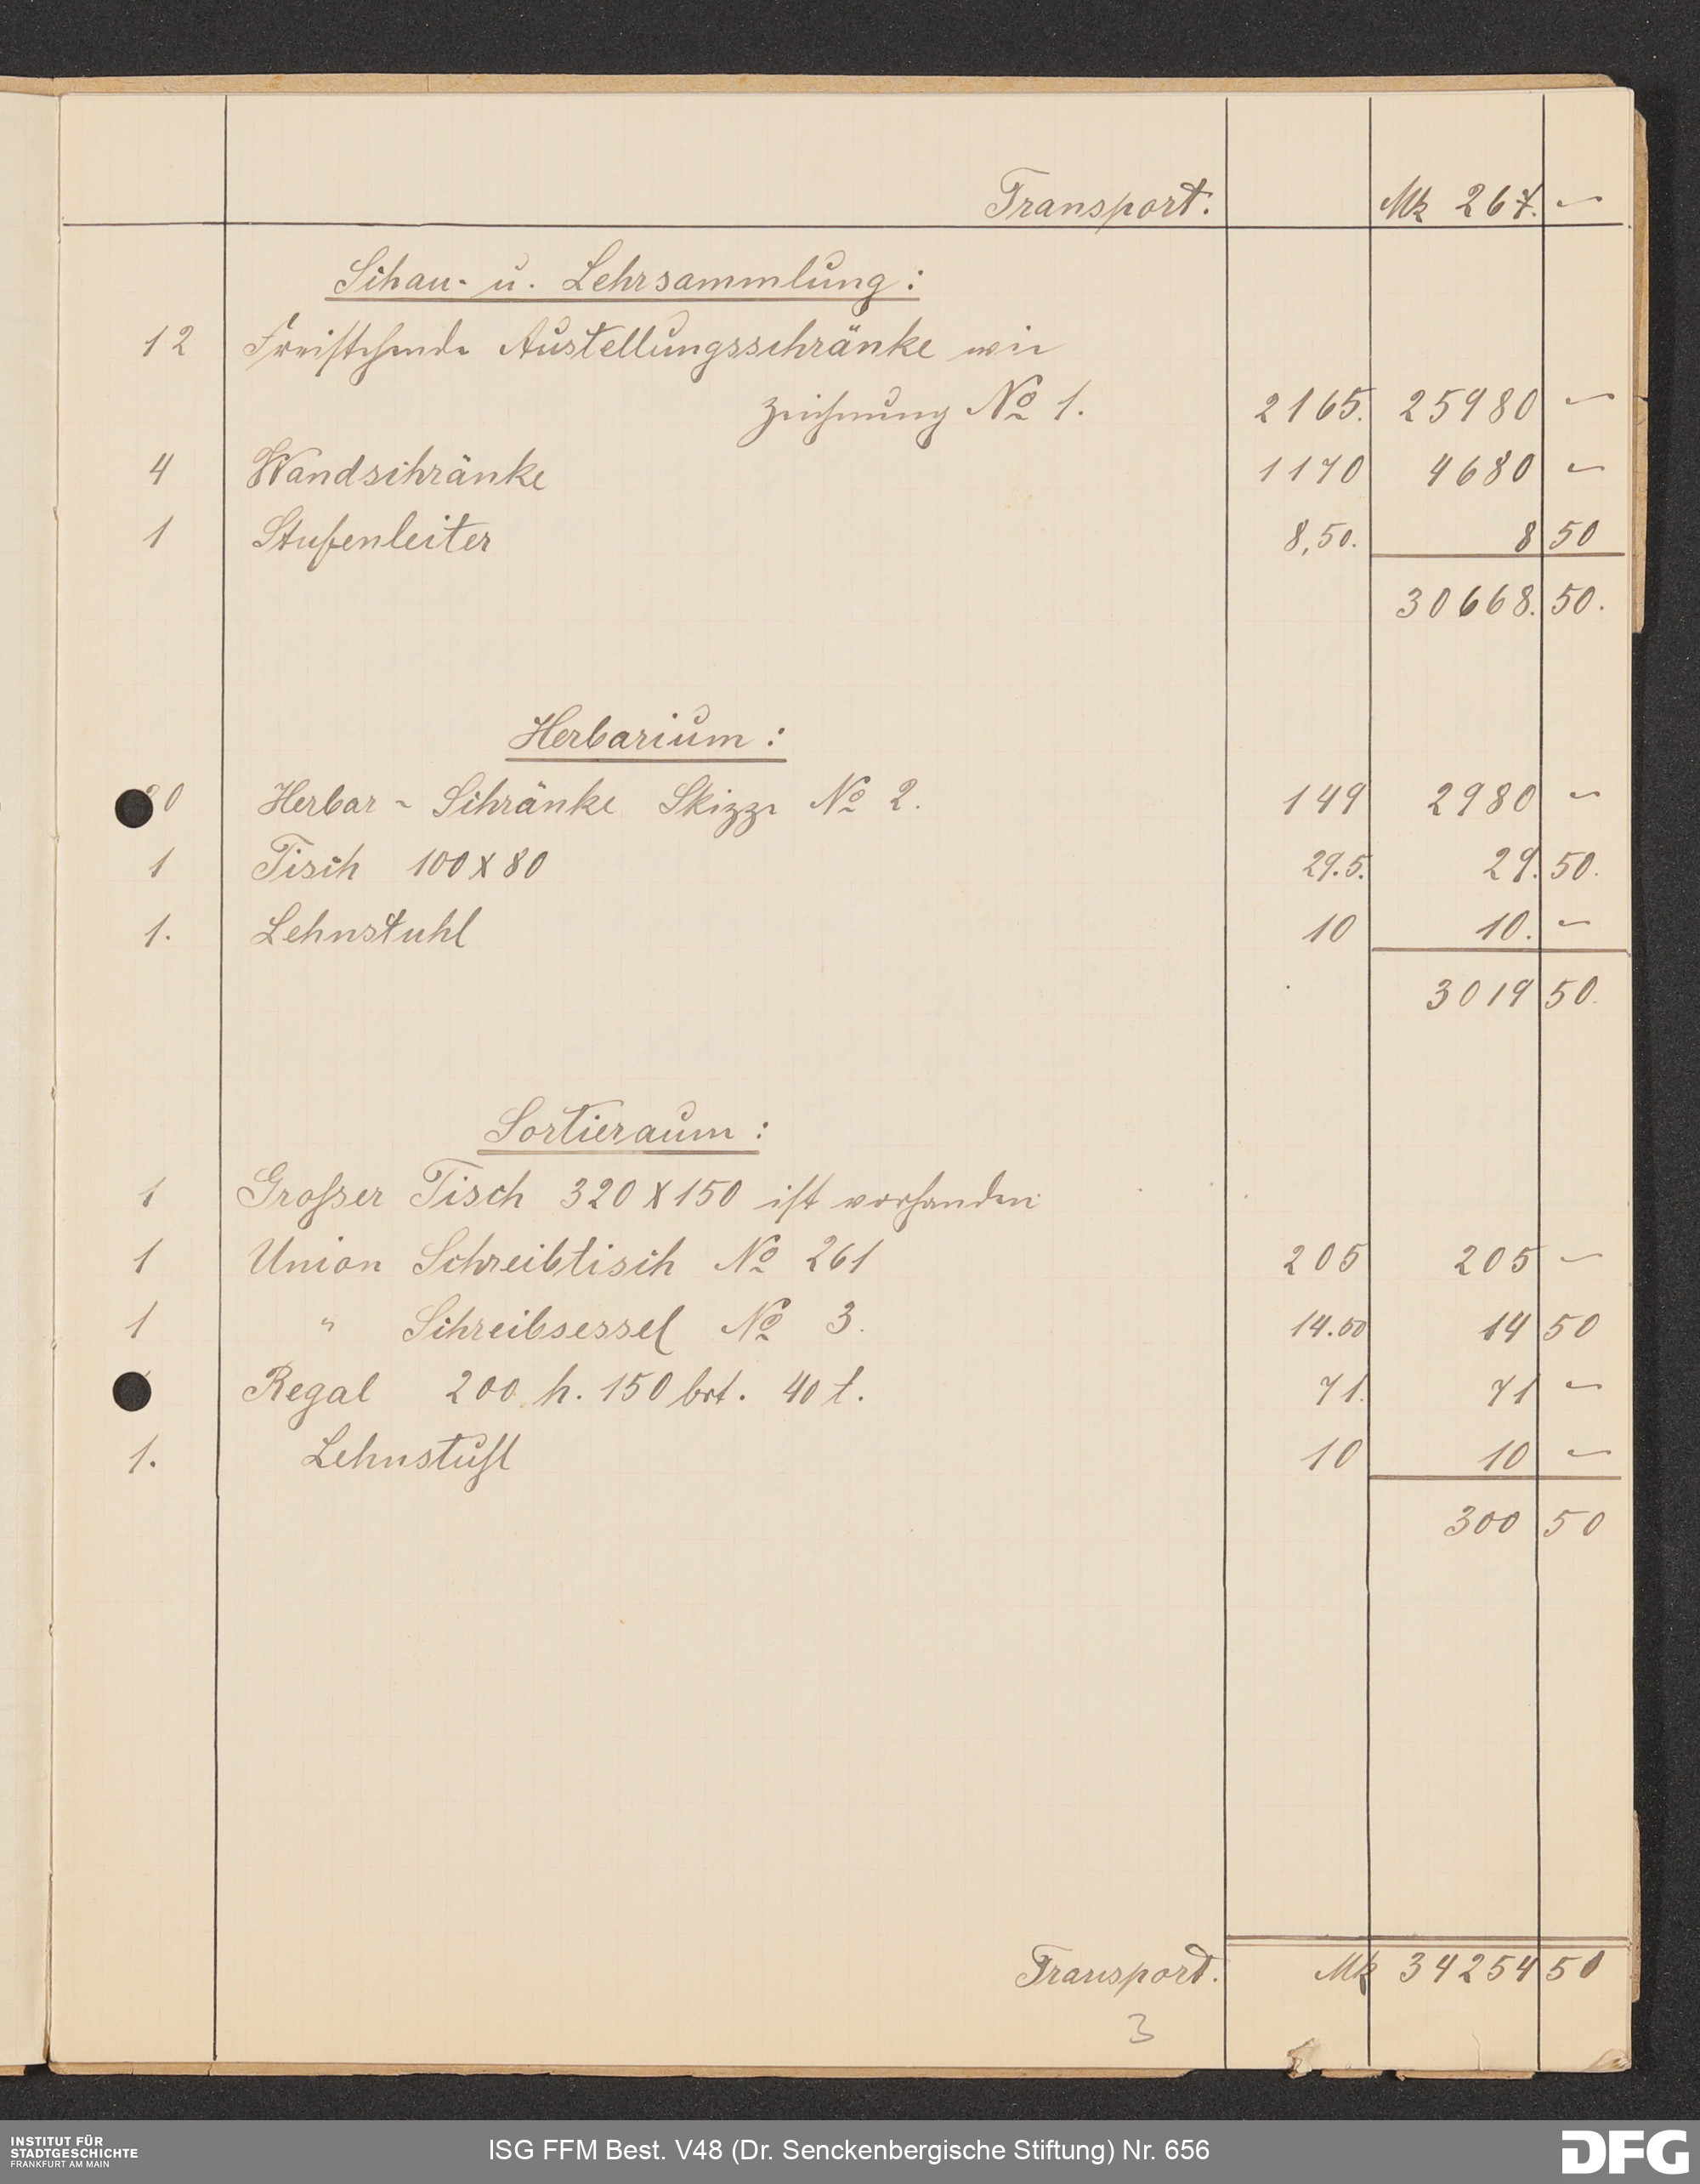 Transport. Mk 267. —
Schau- u. Lehrsammlung:
12 Freistehende Austellungsschränke wie
Zeichnung No 1. 2165. 25980 —
4 Wandschränke 1170 4680 —
1 Stufenleiter 8,50. 8 50
30668. 50.
Herbarium:
20 Herbar - Schränke Skizze No 2. 149 2980 —
1 Tisch 100 x 80 29.5. 29. 50.
1. Lehnstuhl 10 10. —
3019 50.
Sortieraum:
1 Grosser Tisch 320 x 150 ist vorhanden
1 Union Schreibtisch No 261 205 205 —
1 " Schreibsessel No 3. 14.00 14 50
Regal 200 h. 150 brt. 40 t. 71. 71 —
1. Lehnstuhl 10 10 —
300 50
Transport. Mk 34254 50
3
INSTITUT FÜR
STADTGESCHICHTE
FRANKFURT AM MAIN
ISG FFM Best. V48 (Dr. Senckenbergische Stiftung) Nr. 656
DFG